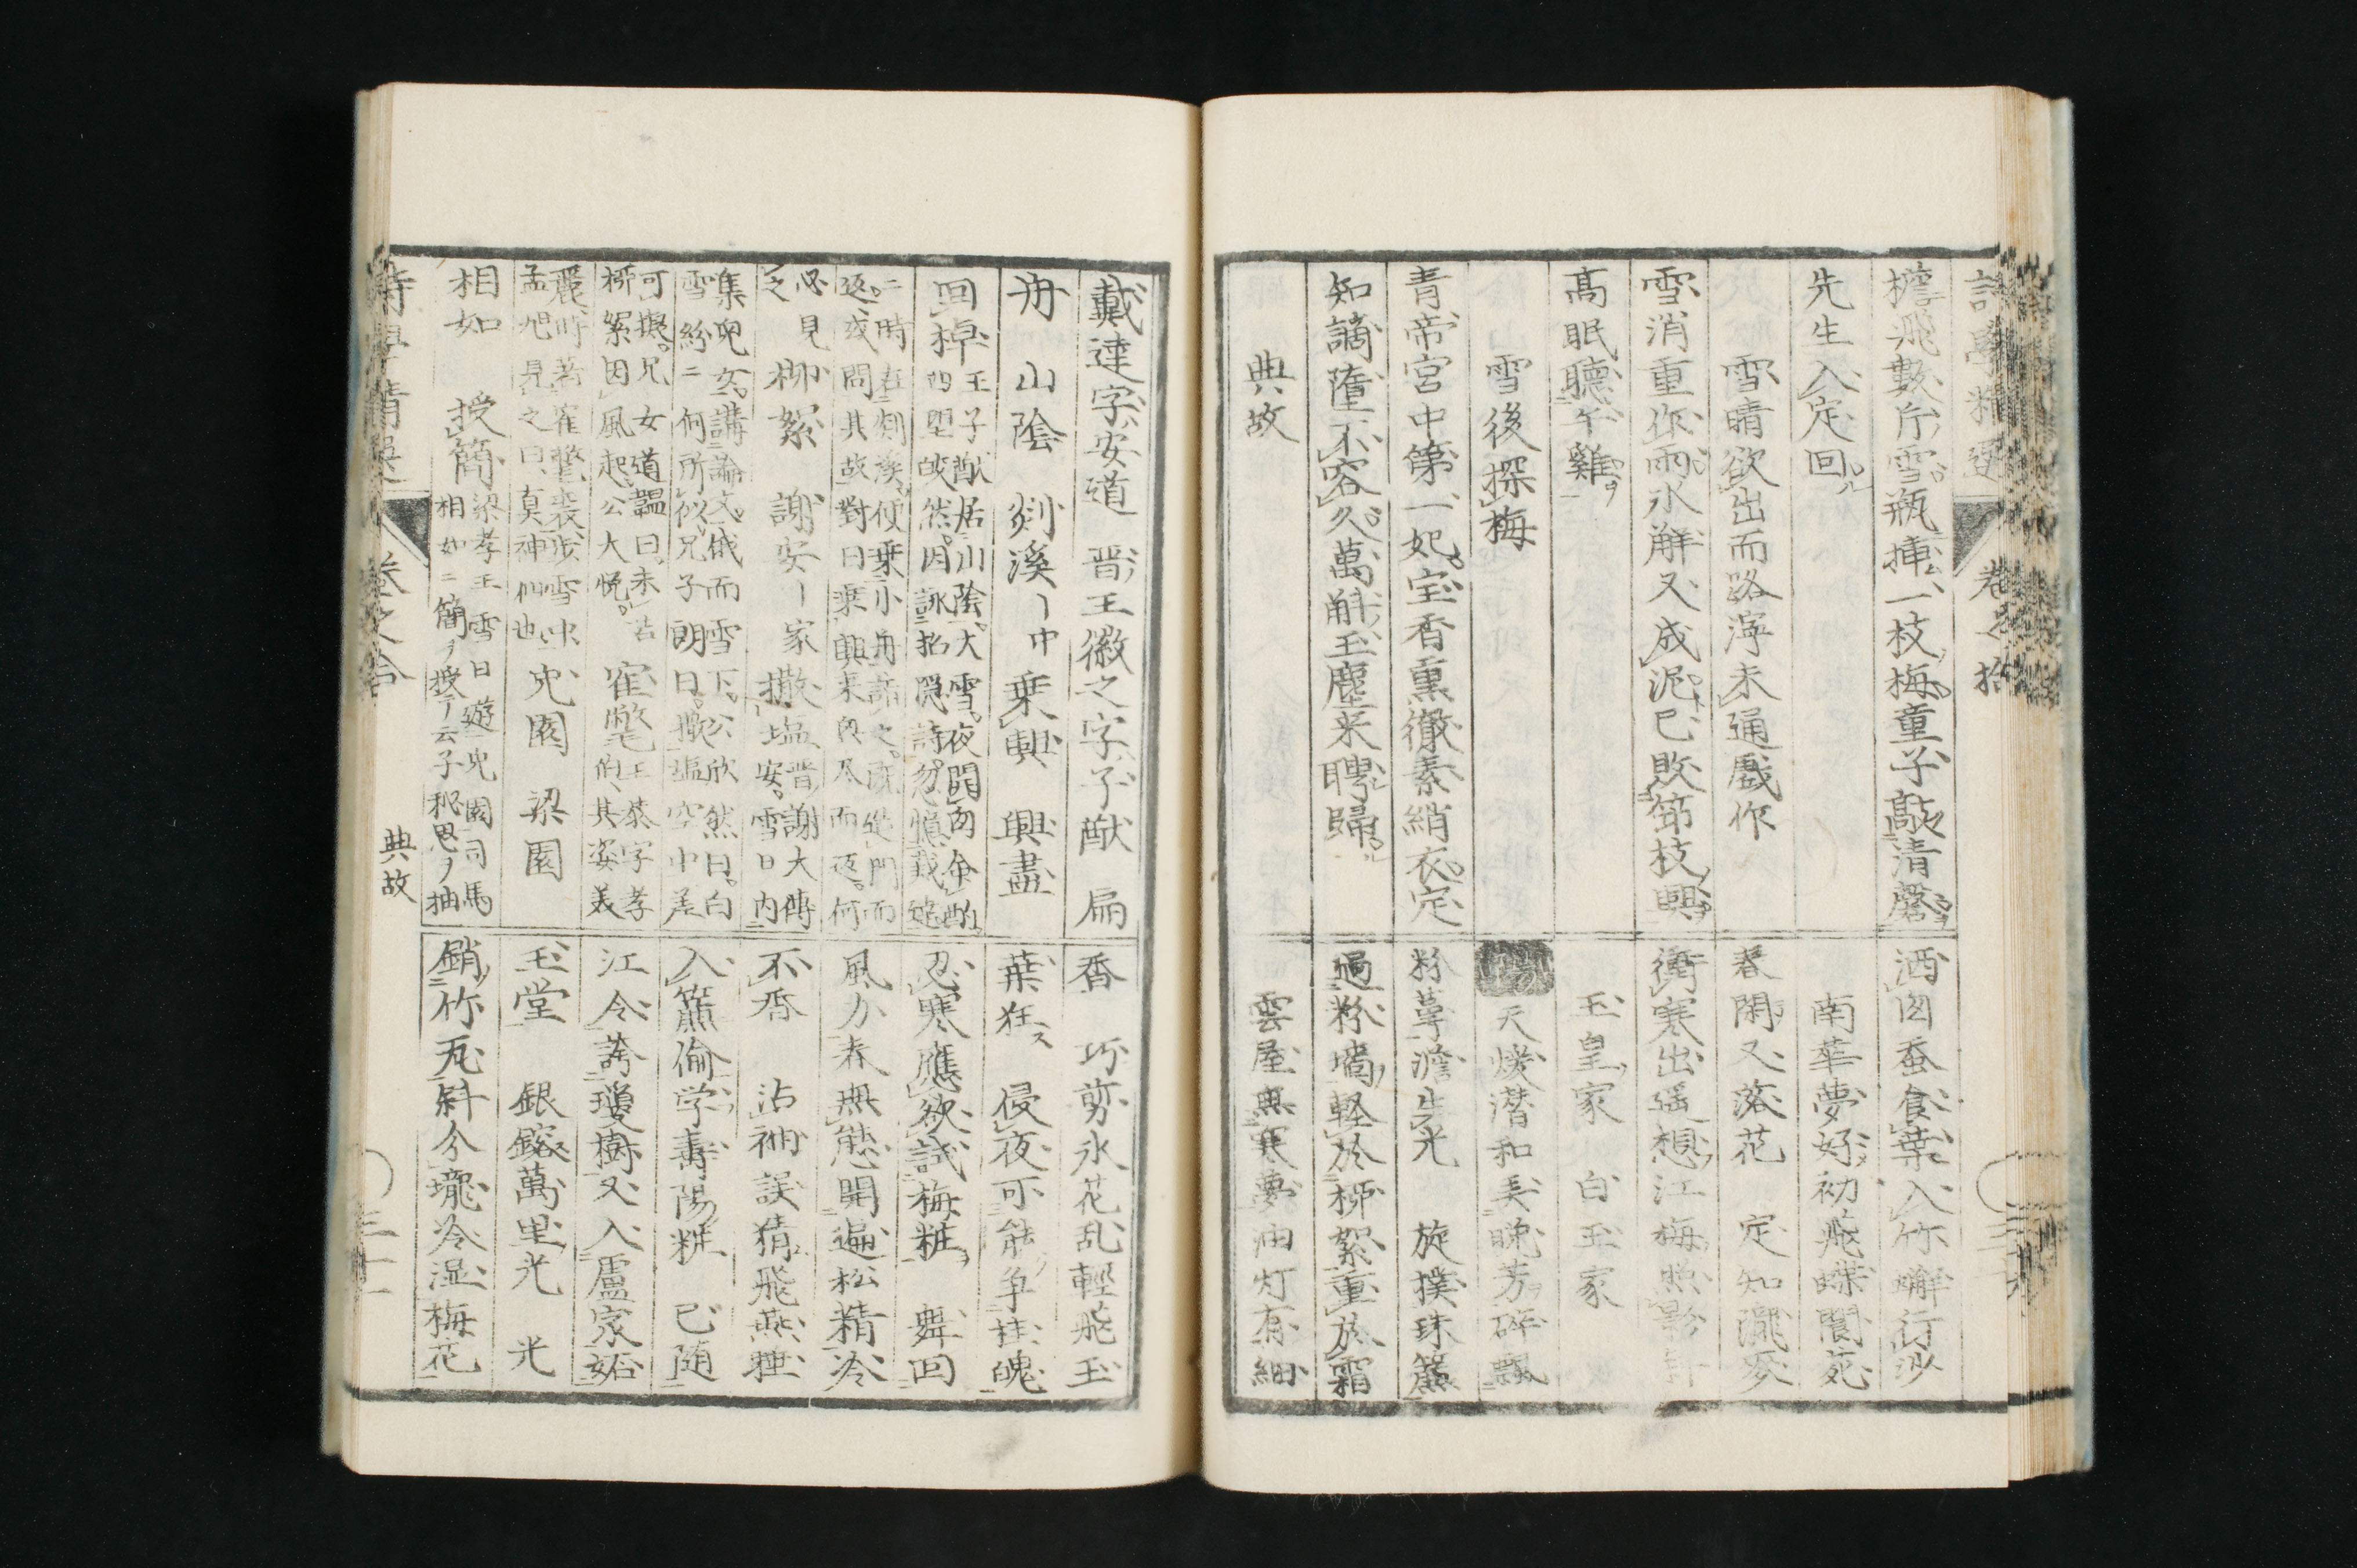 詩學精選 卷之拾
檐飛數片雪瓶挿一枝梅童子敲清磬
先生入定回
雪晴欲出而路濘未通戲作
雪消重作雨氷解又成泥已敗笻枝興
高眠聴午雞
雪後探梅
青帝宮中第一妃宝香熏徹素綃衣定
知謫墮不容久萬斛玉塵来聘歸
典故
洒囱蚕食葉入竹蠏行沙
南華夢好初飛蝶閬苑
春閑又落花 定知瀧麥
衝寒出遥想江梅照影斜
玉皇家 白玉家
天燠潜和美晩芳碎飄
粉蕚澹生光 旋撲珠簾
過粉墻軽於栁絮重於霜
雲屋無寒夢油灯有細
戴逹字安道 晋王徽之字子猷 扁
舟 山陰 剡溪〡中 乗興 興盡
回棹 王子猷居山陰大雪夜開窗命酌
四望皎然因詠招隠詩忽憶戴逵
〻時在剡溪便乗小舟訪之既造門而
返或問其故對曰乗興来興尽而返何
必見
之 栁絮 謝安〡家 撒塩 晋謝大傅
安雪日内
集兒女講論文俄而雪下公欣然曰白
雪紛〻何所似兄子朗曰撒塩空中差
可擬兄女道韞曰未若
栁絮因風起公大悦 窪氅 王恭字孝
伯其姿美
麗時著窪氅裘渉雪中
孟旭見之曰真神仙也 兎園 梁園
相如 授簡 梁孝王雪日遊兎園司馬
相如〻簡ヲ授テ云子秘思ヲ抽
香 巧剪氷花乱輕飛玉
葉狂 侵夜可能争桂魄
忍寒應欲試梅粧 舞回
風力春無態開遍松精冷
不香 沾衲誤猜飛燕睡
入簾偷学壽陽粧 已随
江令誇瓊樹又入盧家妬
玉堂 銀鎔萬里光 光
銷竹瓦斜分壠冷湿梅花
詩學精選 卷之拾 典故 三十一